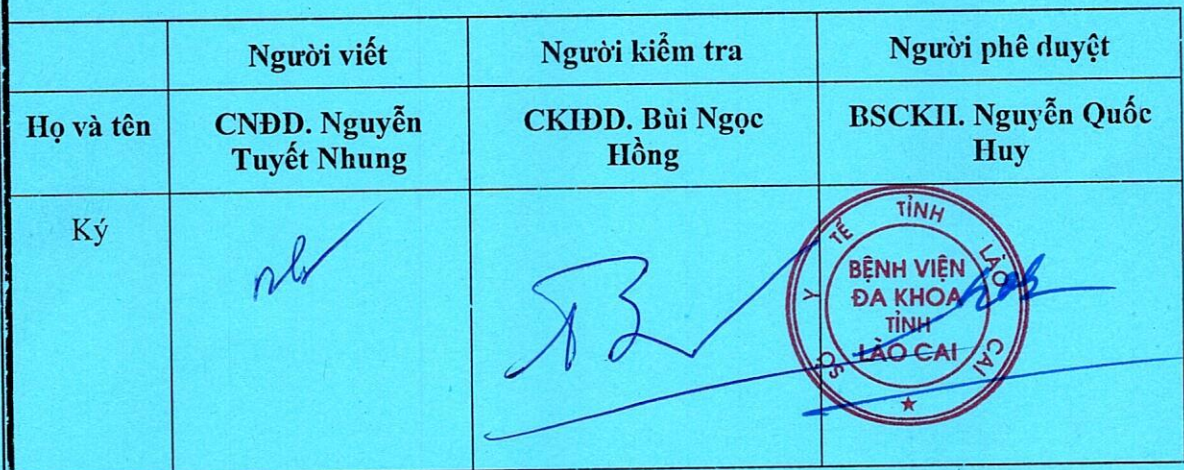 Người viết
Người kiểm tra
Người phê duyệt
Họ và tên
CNĐD. Nguyễn
Tuyết Nhung
CKIĐD. Bùi Ngọc
Hồng
BSCKII. Nguyễn Quốc
Huy
Ký
SỞ Y TẾ TỈNH LÀO CAI
BỆNH VIỆN
ĐA KHOA
TỈNH
LÀO CAI